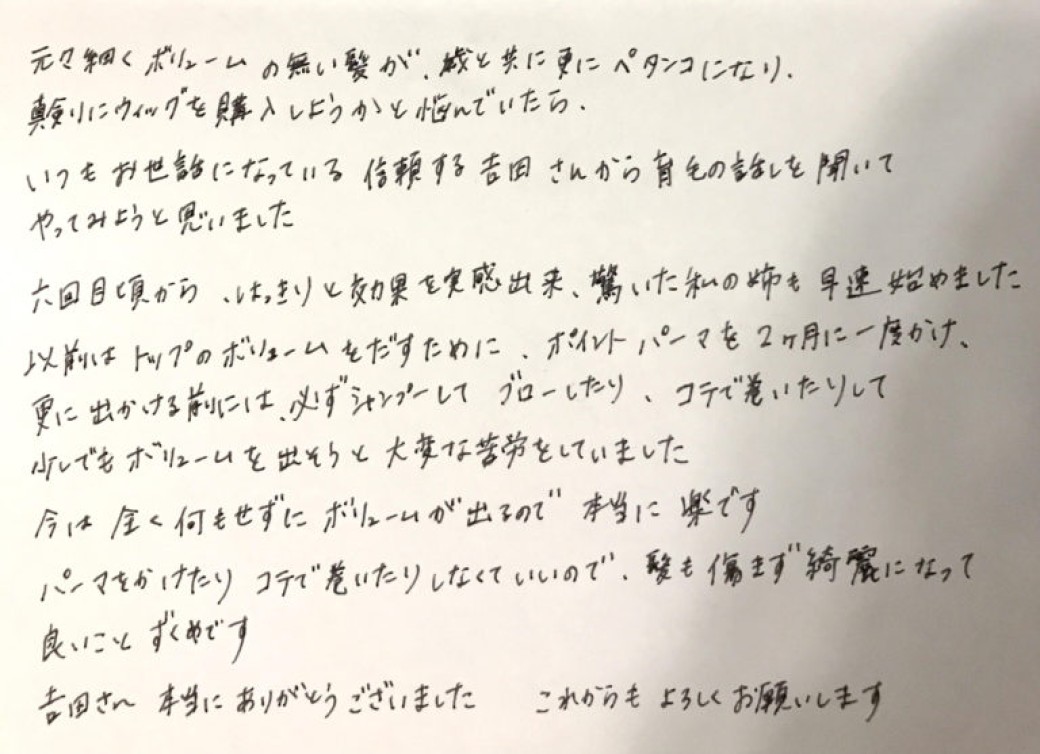 元々細くボリュームの無い髪が、歳と共に更にペタンコになり、
真剣にウィッグを購入しようかと悩んでいたら、
いつもお世話になっている信頼する吉田さんから育毛の話しを聞いて
やってみようと思いました
六回目頃から、はっきりと効果を実感出来、驚いた私の姉も早速始めました
以前はトップのボリュームをだすために、ポイントパーマを2ヶ月に一度かけ、
更に出かける前には、必ずシャンプーしてブローしたり、コテで巻いたりして
少しでもボリュームを出そうと大変な苦労をしていました
今は全く何もせずにボリュームが出るので本当に楽です
パーマをかけたりコテで巻いたりしなくていいので、髪も傷まず綺麗になって
良いことずくめです
吉田さん 本当にありがとうございました これからもよろしくお願いします